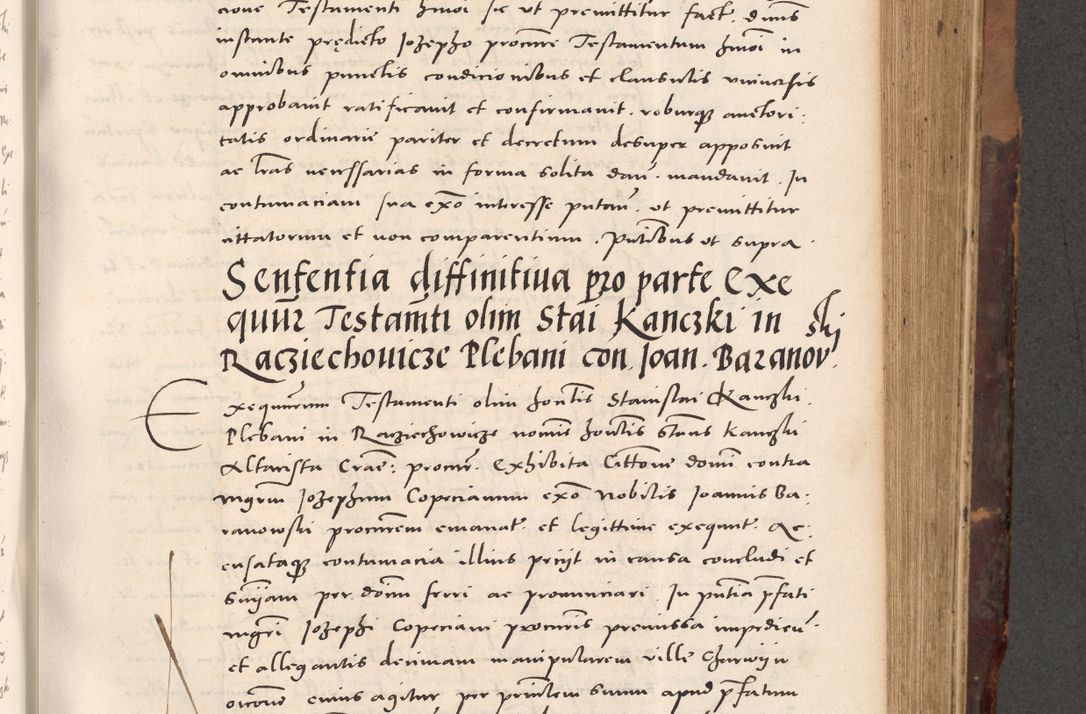 cione Testamenti hmoi sic ut premittitur fact. dnus
instante prędicto Jozepho procure Testamentum hmoi in
omnibus punctis condicionibus et clausulis universis
approbavit ratificavit et confirmavit. roburqz auctori:
tatis ordinarie pariter et decretum desuper apposuit
ac lras necessarias in forma solita dari mandavit. In
contumaciam sua exo interesse putan. ut premittitur
cittatorum et non comparentium. Pntibus ut supra.
Sententia diffinitiva pro parte Exe
quutr Testamti olim Stai Kanczki in
Racziechovicze Plebani con Joan. Baranovski
Exequutorum Testamenti olim honlis Stanislai Kanczki
Plebani in Racziechowicze nomine honlis Stanis Kanczki
Altarista Crac: procur. Exhibita Cittone domi contra
mgrum Jozephum Copecianum exo Nobilis Joannis Ba:
ranowski procurem emanat. et legittime exequut. Ac:
cusataqz contumacia illius periit in causa concludi et
Sniam per dom ferri ac pronunciari. In pntia pfati
mgri Jozephi Copeciani procuris premissa impedien.
et allegantis decimam manipularem ville Charwin
occone cuius agitur per princlem suum apud pfatum